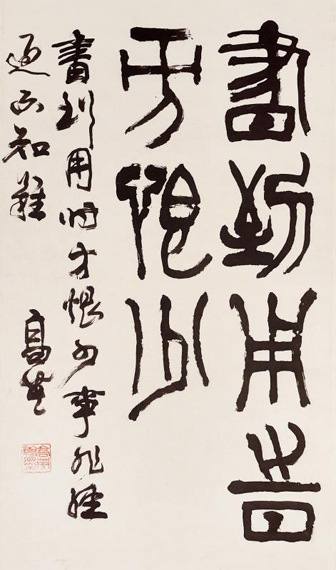 書到用旹
方恨少
書到用时方恨少事非經
過不知難